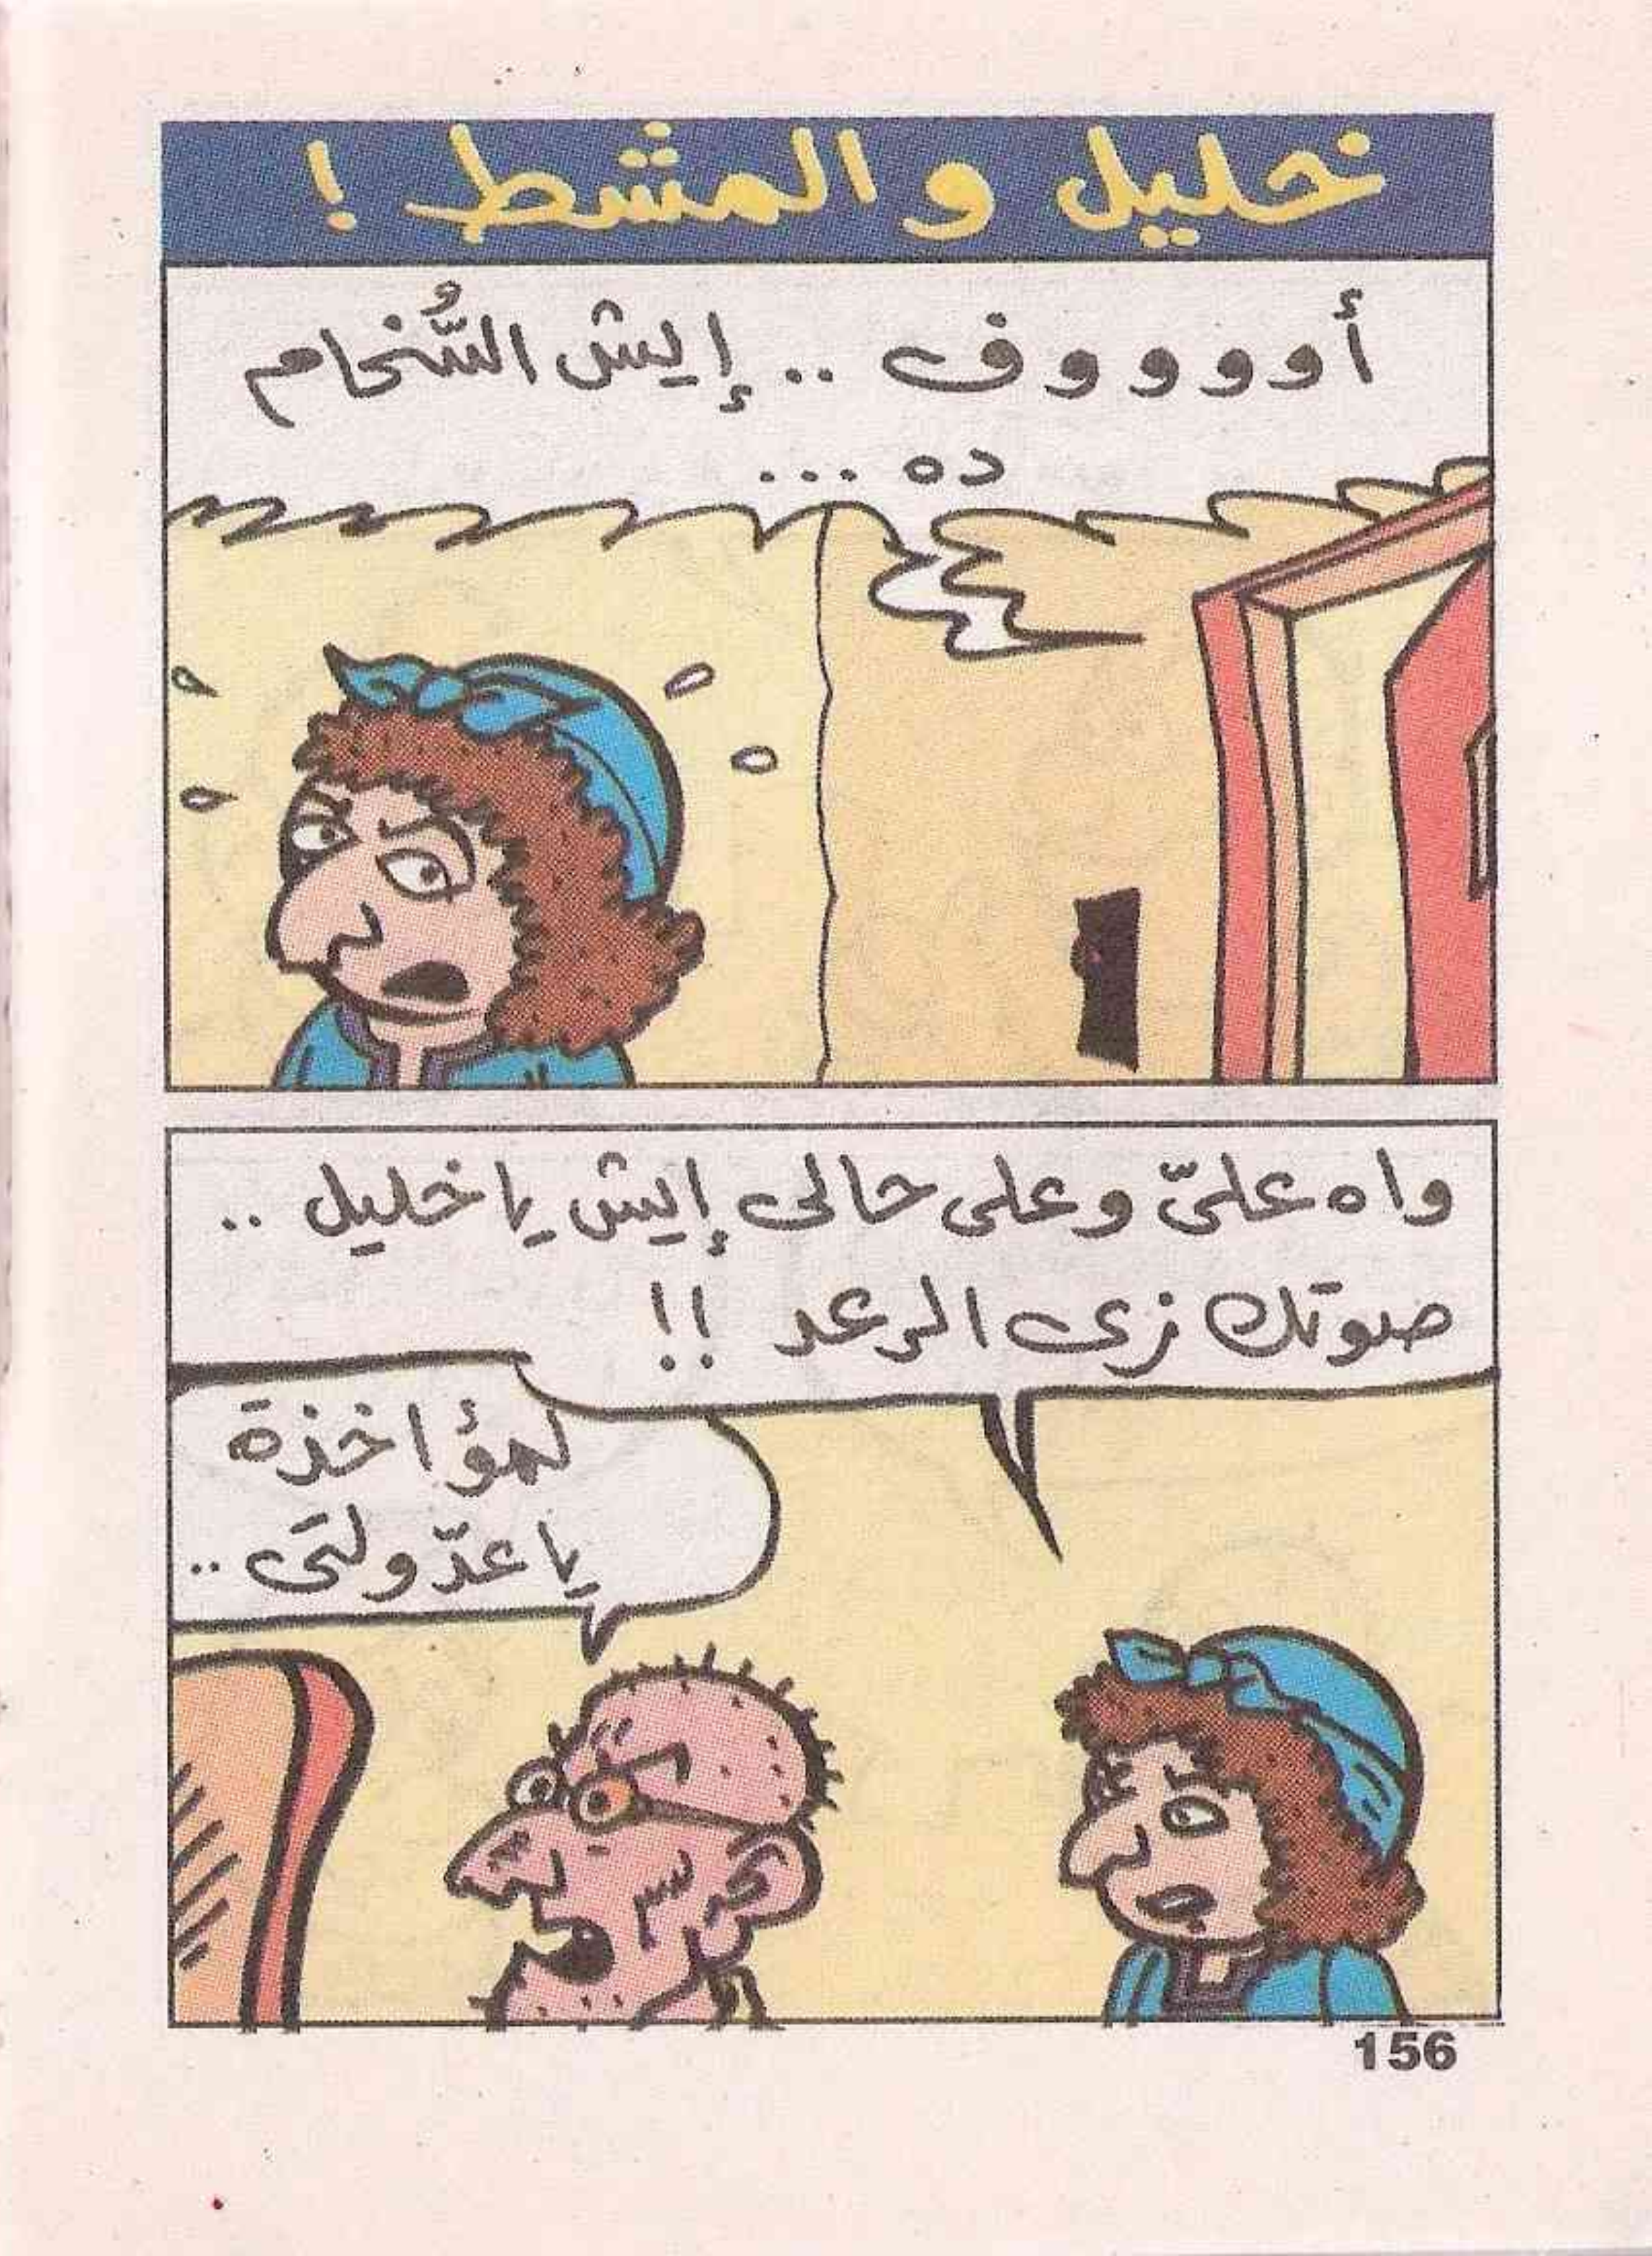 خليل والمشط !
أووووف .. إيش السُّخام
ده ...
واه علىّ وعلى حالى إيش يا خليل ..
صوتك زى الرعد !!
لمؤاخذة
يا عدّولتى ..
156